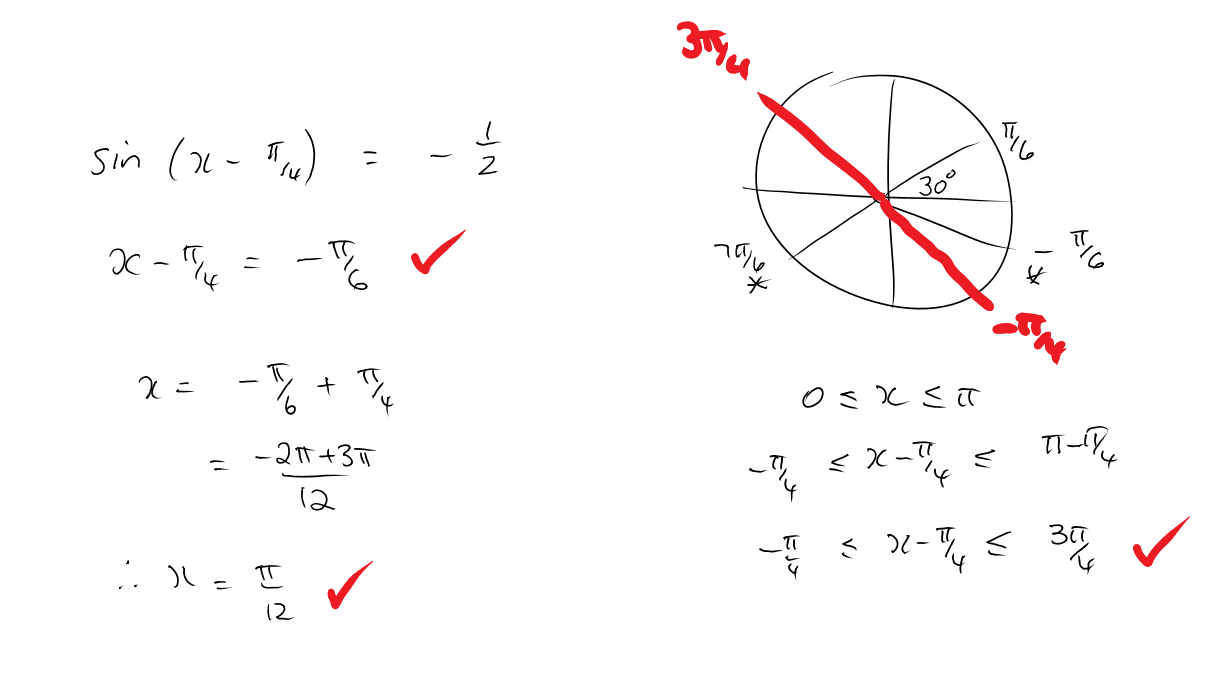 sin (x - π/4) = - 1/2
x - π/4 = - π/6 ✓
x = - π/6 + π/4
= (-2π+3π)/12
∴ x = π/12 ✓
3π/4
π/6
30°
- π/6
*
7π/6
*
-π/4
0 ≤ x ≤ π
-π/4 ≤ x - π/4 ≤ π - π/4
-π/4 ≤ x - π/4 ≤ 3π/4 ✓